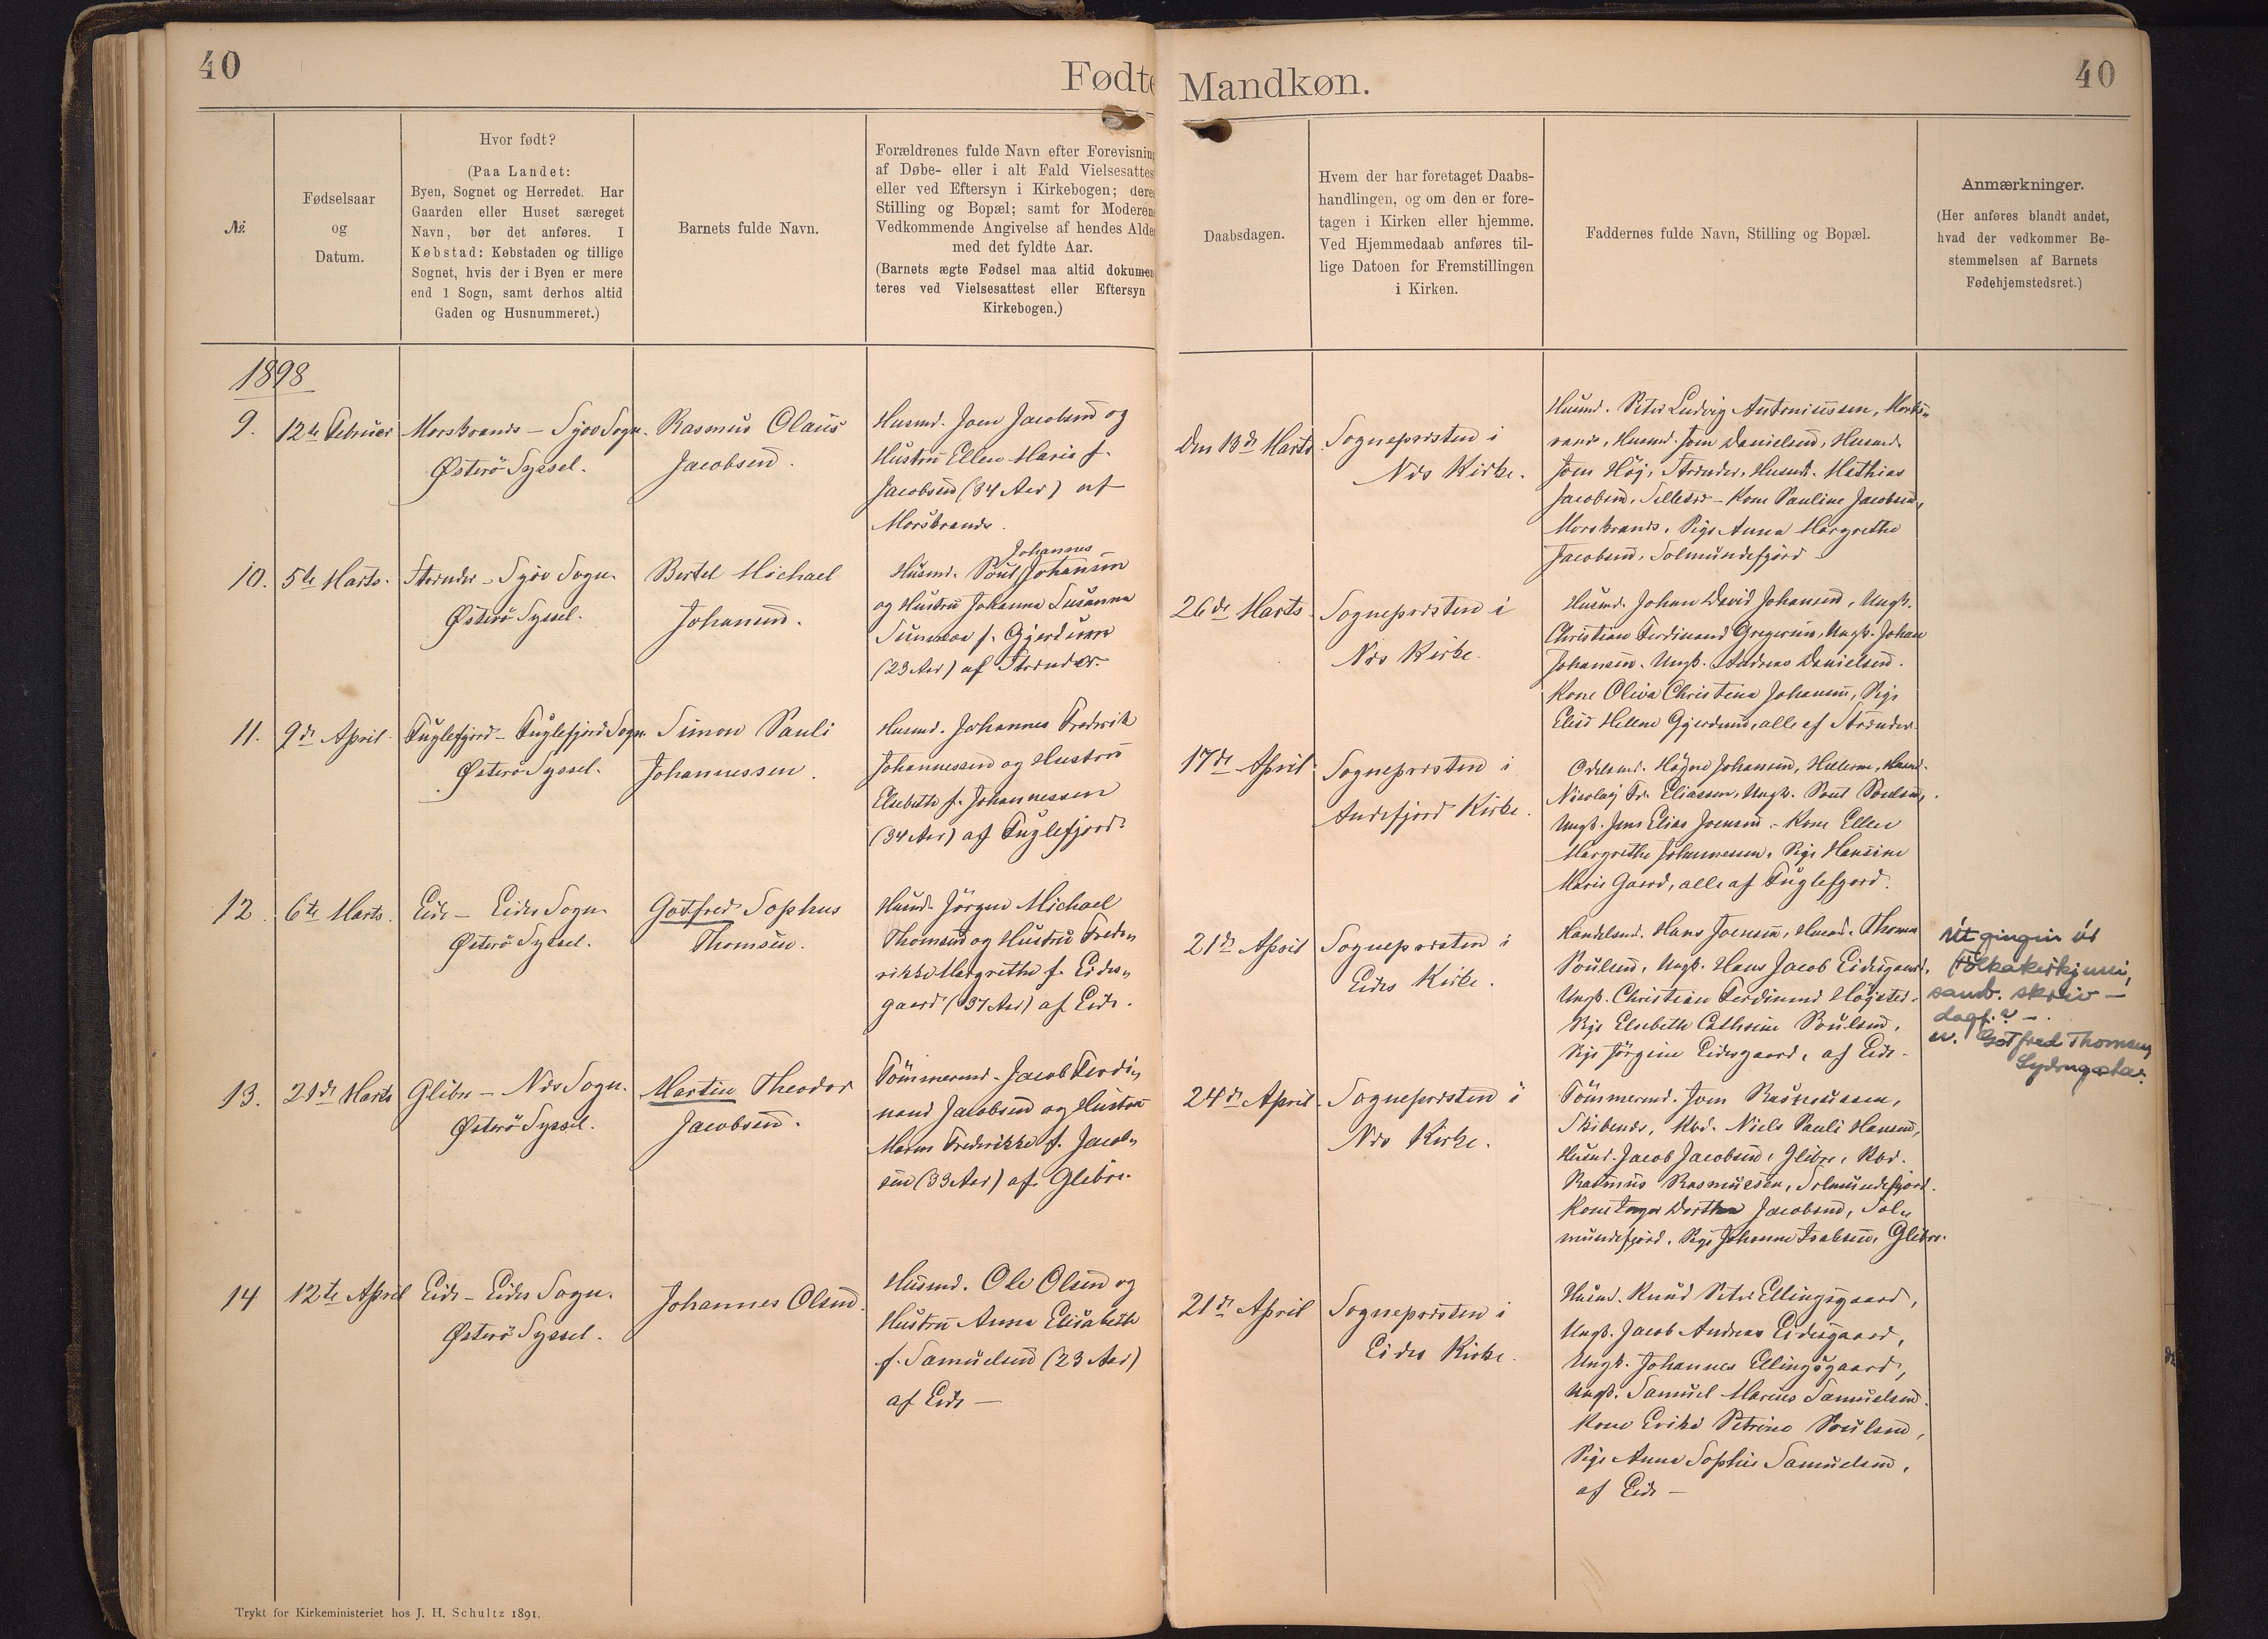 40
Fødte
Mandkøn.
40
№
Fødselsaar
og
Datum.
Hvor født?
(Paa Landet:
Byen, Sognet og Herredet. Har
Gaarden eller Huset særeget
Navn, bør det anføres. I
Købstad: Købstaden og tillige
Sognet, hvis der i Byen er mere
end 1 Sogn, samt derhos altid
Gaden og Husnummeret.)
Barnets fulde Navn.
Forældrenes fulde Navn efter Forevisning
af Døbe- eller i alt Fald Vielsesattest
eller ved Eftersyn i Kirkebogen; deres
Stilling og Bopæl; samt for Moderens
Vedkommende Angivelse af hendes Alder
med det fyldte Aar.
(Barnets ægte Fødsel maa altid dokumen-
teres ved Vielsesattest eller Eftersyn
Kirkebogen.)
Daabsdagen.
Hvem der har foretaget Daabs-
handlingen, og om den er fore-
tagen i Kirken eller hjemme.
Ved Hjemmedaab anføres til-
lige Datoen for Fremstillingen
i Kirken.
Faddernes fulde Navn, Stilling og Bopæl.
Anmærkninger.
(Her anføres blandt andet,
hvad der vedkommer Be-
stemmelsen af Barnets
Fødehjemstedsret.)
1898
9.
12te Februar
Morskranes – Sjov Sogn.
Østerö Syssel.
Rasmus Olaus
Jacobsen.
Husmd. Joen Jacobsen og
Hustru Ellen Marie f.
Jacobsen (34 Aar) af
Morskranes.
Den 13de Marts
Sognepræsten i
Næs Kirke.
Husmd. Peter Ludvig Antoniussen, Morsk-
ranes, Husmd. Joen Danielsen, Husmd.
Joen Höj, Strænder, Husmd. Mathias
Jacobsen, Selletræ – Kone Pauline Jacobsen,
Morskranes, Pige Anna Margrethe
Jacobsen, Solmundefjord –
10.
5te Marts.
Strænder – Sjov Sogn.
Østerö Syssel.
Bertel Michael
Johansen.
Johannes
Husmd. Poul Johansen
og Hustru Johanna Susanna
Sunneva f. Gjerdum
(23 Aar) af Strænder.
26de Marts
Sognepræsten i
Næs Kirke.
Husmd. Johan David Johansen, Ungk.
Christian Ferdinand Gregersen, Ungk. Johan
Johansen, Ungk. Andreas Danielsen.
Kone Oliva Christina Johansen, Pige
Elise Helene Gjerdum, alle af Strænder.
11.
9de April
Fuglefjord – Fuglefjord Sogn.
Østerö Syssel.
Simon Pauli
Johannessen.
Husmd. Johannes Frederik
Johannessen og Hustru
Elsebeth f. Johannessen
(34 Aar) af Fuglefjord.
17de April
Sognepræsten i
Andefjord Kirke.
Odelsmd. Högne Johansen, Hellerne, Husmd.
Nicolaj Fr. Eliassen, Ungk. Poul Poulsen,
Ungk. Jens Elias Joensen. – Kone Ellen
Margrethe Johannessen, Pige Hansine
Marie Gaard, alle af Fuglefjord.
12.
6te Marts.
Eide – Eides Sogn.
Østerö Syssel.
Gotfred Sophus
Thomsen.
Husmd. Jörgen Michael
Thomsen og Hustru Frede-
rikke Margrethe f. Eides-
gaard (37 Aar) af Eide.
21de April
Sognepræsten i
Eides Kirke.
Handelsmd. Hans Joensen, Husmd. Thomas
Poulsen, Ungk. Hans Jacob Eidesgaard,
Ungk. Christian Ferdinand Högsted.
Pige Elsebeth Cathrine Poulsen,
Pige Jörgine Eidesgaard, af Eide.
Útgingin úr
fólkakirkjuni,
samb. skriv –
dagf. ? –.
u. Gotfred Thomsen
Syðrugøta.
13.
21de Marts
Glibre – Næs Sogn.
Østerö Syssel.
Martin Theodor
Jacobsen.
Tömmermd. Jacob Ferdi-
nand Jacobsen og Hustru
Maren Frederikke f. Jacob-
sen (33 Aar) af Glibre.
24de April
Sognepræsten i
Næs Kirke.
Tömmermd. Joen Rasmussen,
Skibenæs, Kbd. Niels Pauli Hansen,
Husmd. Jacob Jacobsen, Glibre, Kbd.
Rasmus Rasmussen, Solmundefjord.
Kone Inger Dorthea Jacobsen, Sol-
mundefjord, Pige Johanne Isaksen, Glibre.
14
12te April
Eide – Eides Sogn.
Østerö Syssel.
Johannes Olsen.
Husmd. Ole Olsen og
Hustru Anna Elisabeth
f. Samuelsen (23 Aar)
af Eide –
21de April
Sognepræsten i
Eides Kirke.
Husmd. Knud Peter Ellingsgaard,
Ungk. Jacob Andreas Eidesgaard,
Ungk. Johannes Ellingsgaard,
Ungk. Samuel Marius Samuelsen.
Kone Erika Petrine Poulsen,
Pige Anna Sophie Samuelsen,
af Eide –
Trykt for Kirkeministeriet hos J. H. Schultz 1891.